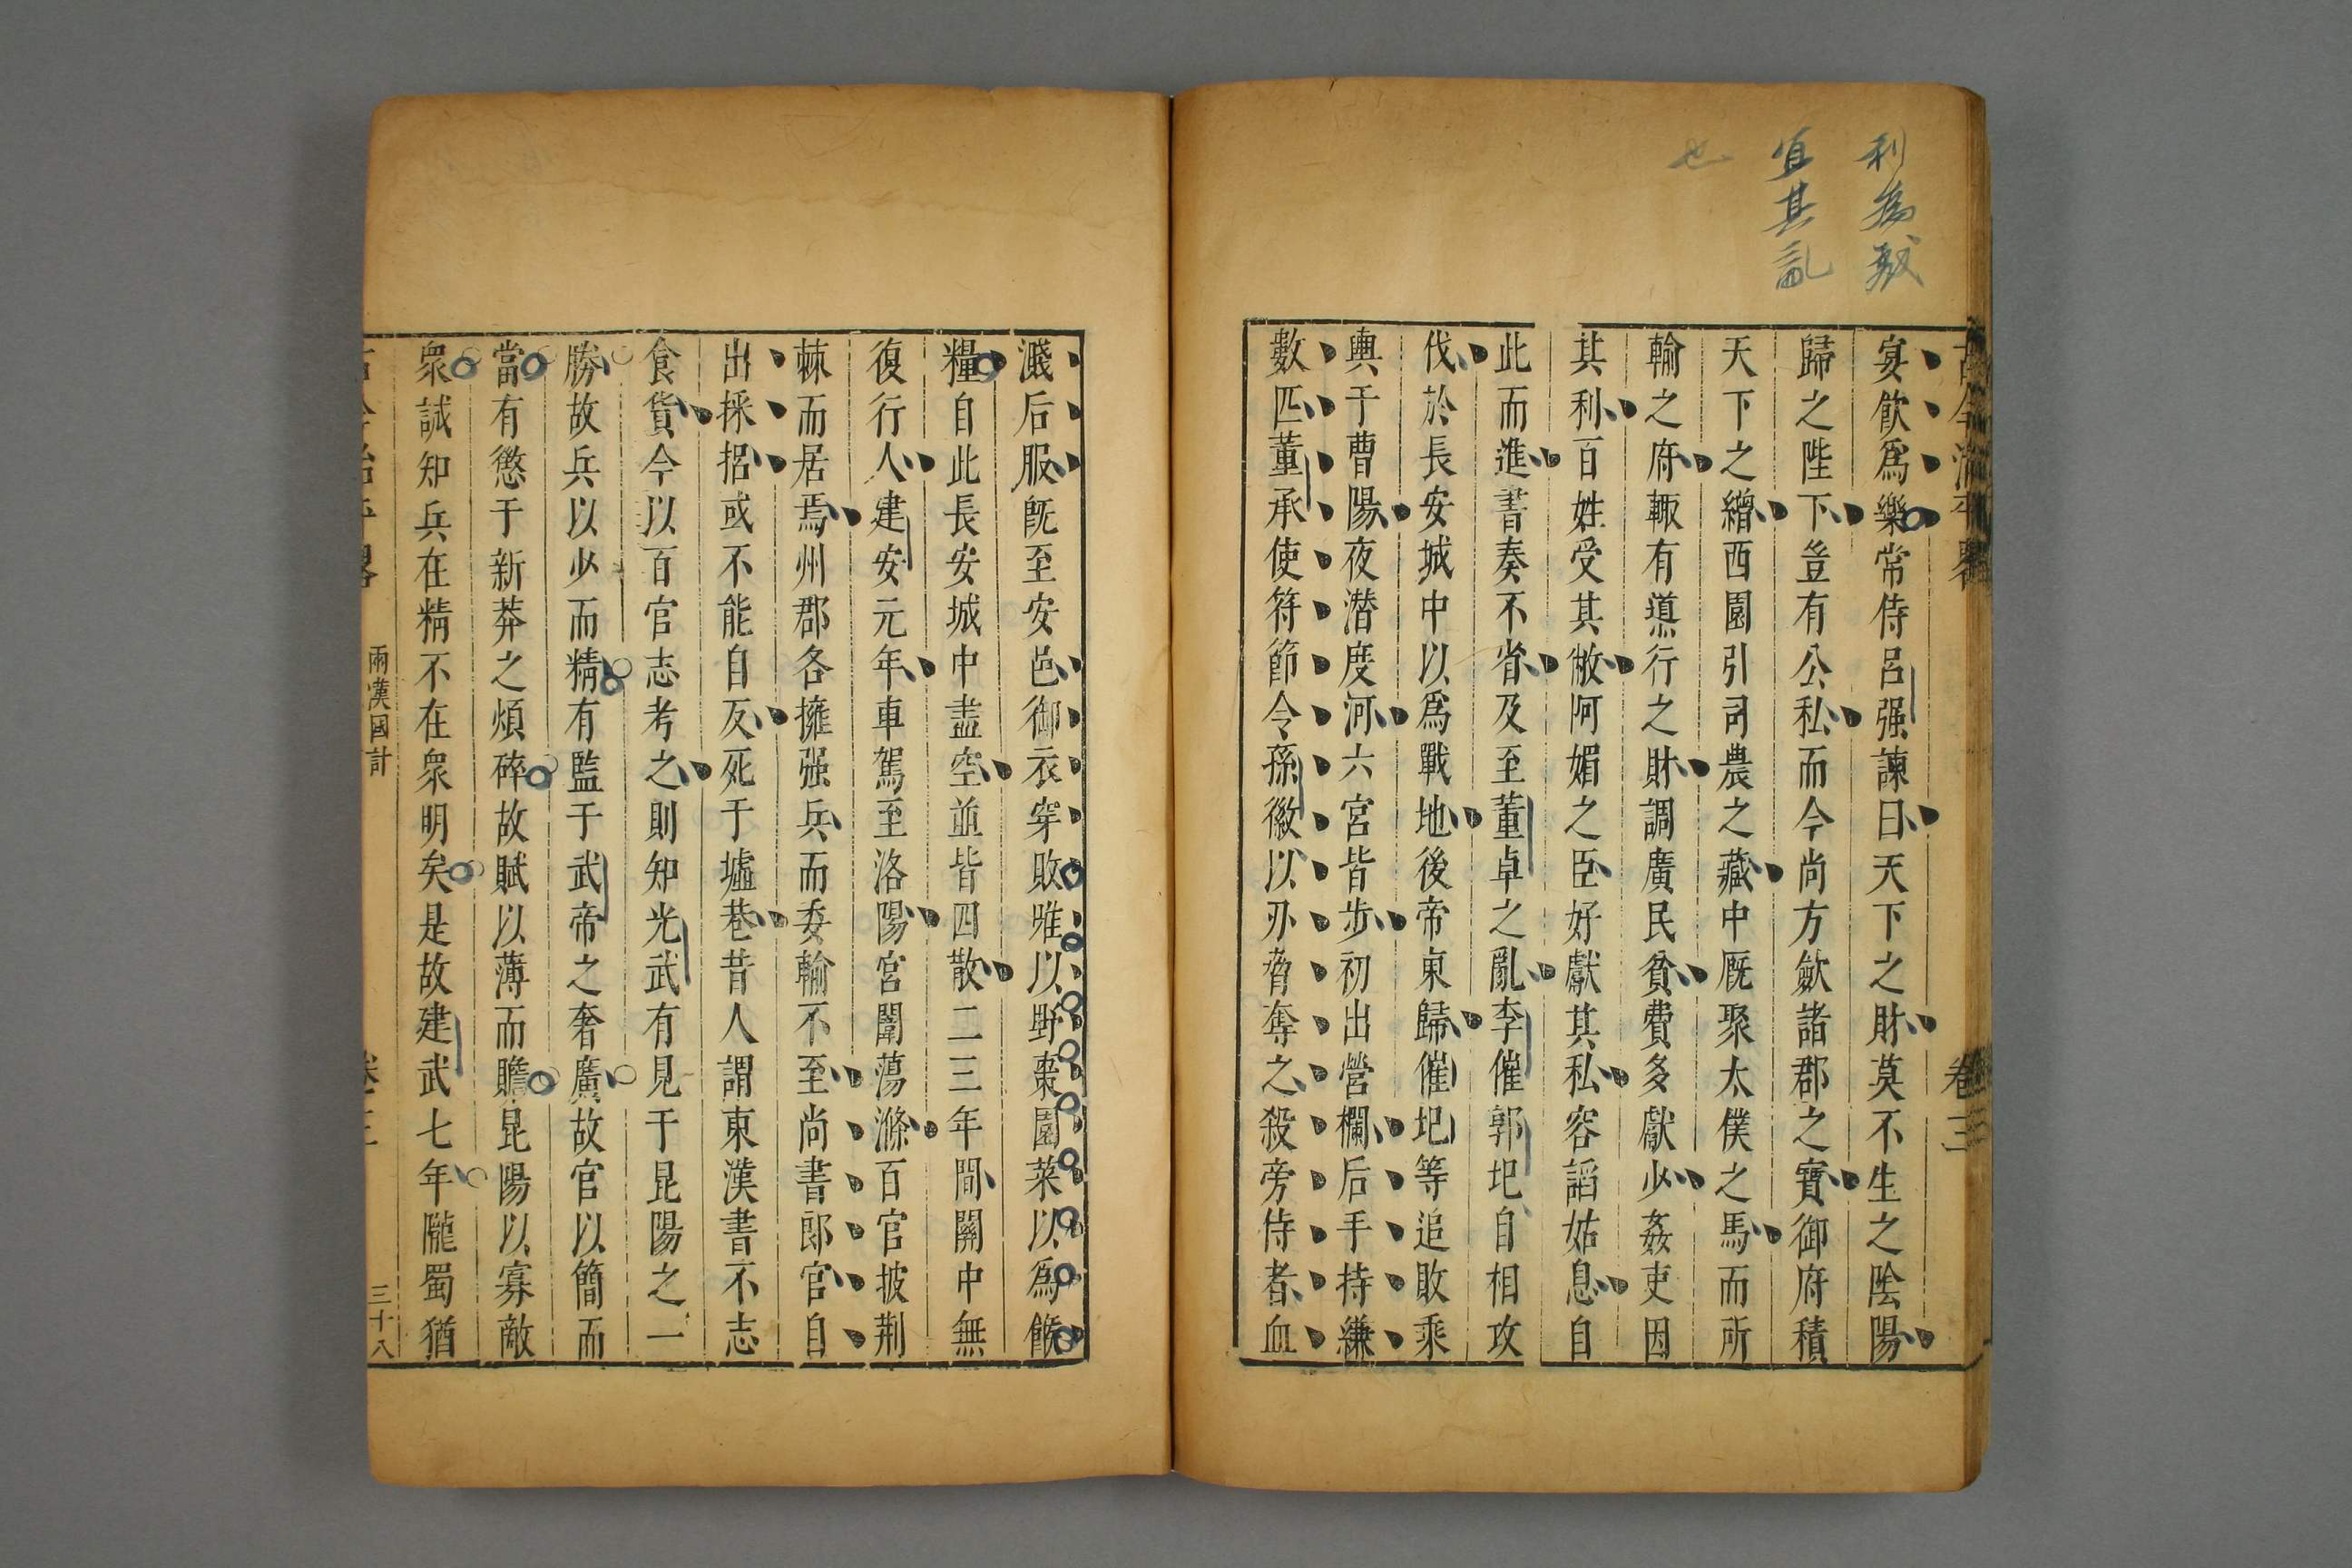 利為敵
宜其亂
也
古今治平畧
卷三
宴飲爲樂常侍呂强諫曰天下之財莫不生之陰陽
歸之陛下豈有公私而今尚方斂諸郡之寶御府積
天下之繒西園引司農之藏中厩聚太僕之馬而所
輸之府輙有導行之財調廣民貧費多獻少姦吏因
其利百姓受其敝阿媚之臣好獻其私容謟姑息自
此而進書奏不省及至董卓之亂李傕郭汜自相攻
伐於長安城中以爲戰地後帝東歸傕汜等追敗乘
輿于曹陽夜潛度河六宮皆步初出營欄后手持縑
數匹董承使符節令孫徽以刃脅奪之殺旁侍者血
濺后服旣至安邑御衣穿敗唯以野棗園菜以爲餱
糧自此長安城中盡空並皆四散二三年間關中無
復行人建安元年車駕至洛陽宮闈蕩滌百官披荆
棘而居焉州郡各擁强兵而委輸不至尚書郎官自
出採稆或不能自反死于墟巷昔人謂東漢書不志
食貨今以百官志考之則知光武有見于昆陽之一
勝故兵以少而精有監于武帝之奢廣故官以簡而
當有懲于新莽之煩碎故賦以薄而贍昆陽以寡敵
衆誠知兵在精不在衆明矣是故建武七年隴蜀猶
古今治平畧
兩漢國計
卷三
三十八